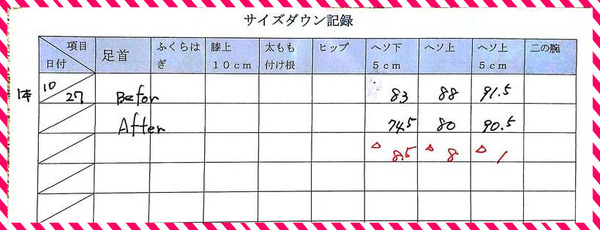 サイズダウン記録
項目 日付 足首 ふくらはぎ 膝上10cm 太もも付け根 ヒップ ヘソ下5cm ヘソ上 ヘソ上5cm 二の腕
10/27 Befor 83 88 91.5
After 74.5 80 90.5
△8.5 △8 △1